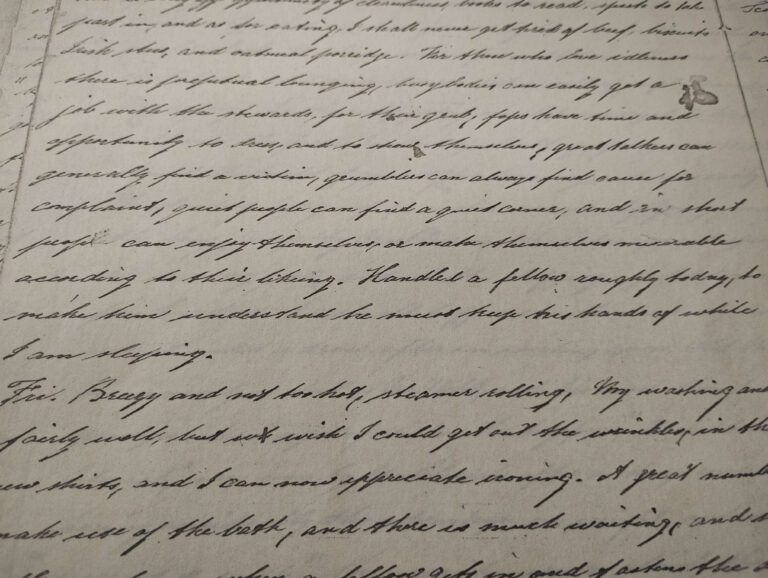 of cleanliness, books to read, sports to take
part in, and as for eating, I shall never get tired of beef, biscuits
Irish stew, and oatmeal porridge. For those who love idleness
there is perpetual lounging, busybodies can easily get a
job with the stewards, for their grub, fops have time and
opportunity to dress, and to show themselves, great talkers can
generally find a victim, grumblers can always find cause for
complaint, quiet people can find a quiet corner, and in short
people can enjoy themselves, or make themselves miserable
according to their liking. Handled a fellow roughly today, to
make him understand he must keep his hands of while
I am sleeping.
Fri. Breezy and not too hot, steamer rolling, My washing
fairly well, but wish I could get out the wrinkles, in
shirts, and I can now appreciate ironing. A great
make use of the bath, and there is much waiting, and
when a fellow gets in and fastens the